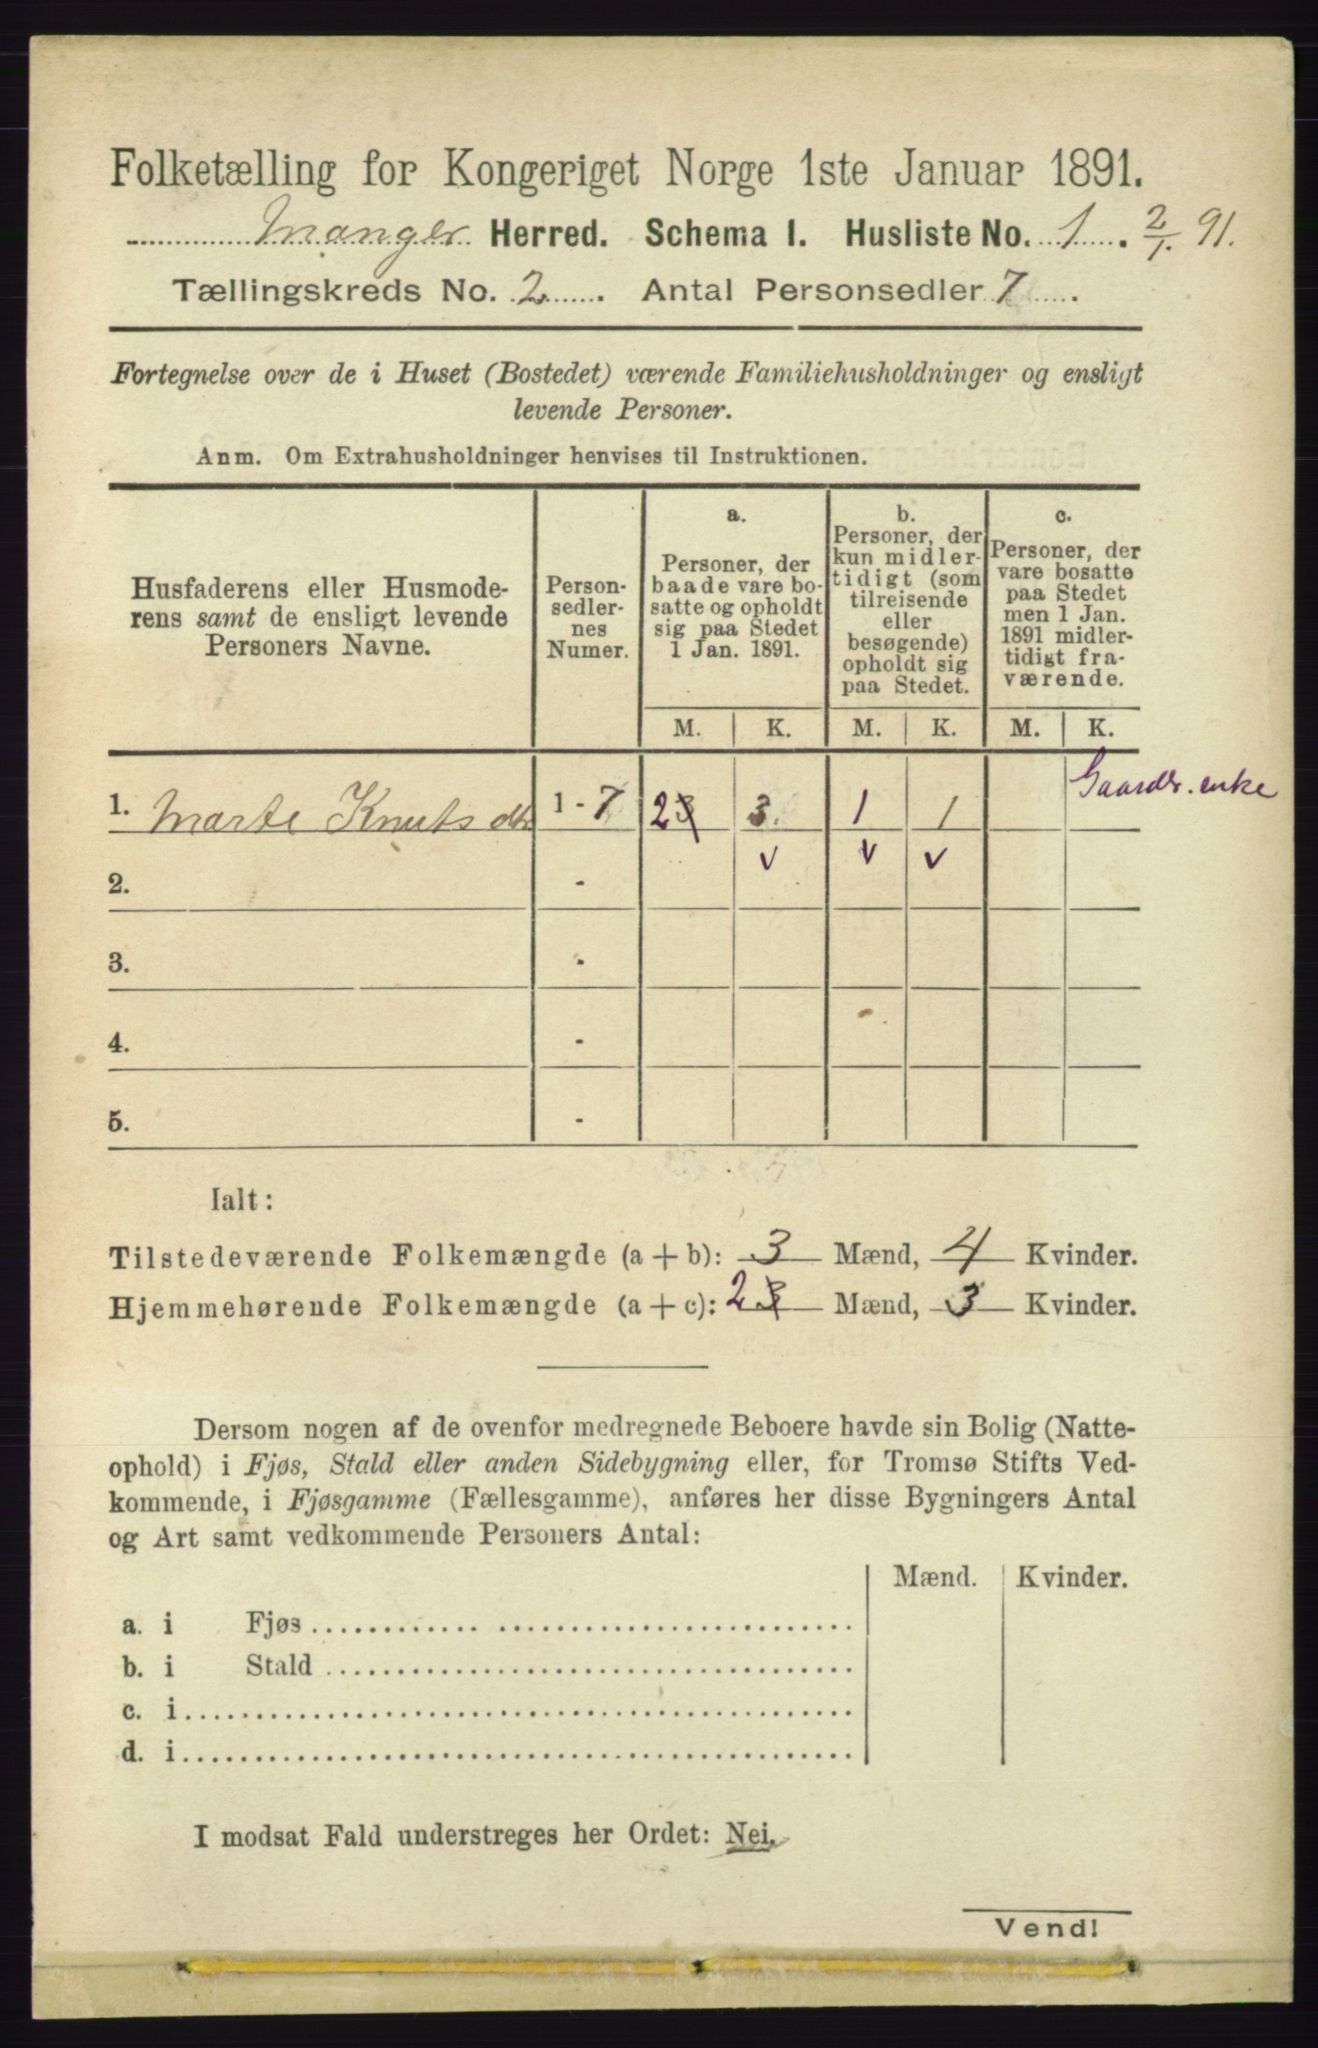 Folketælling for Kongeriget Norge 1ste Januar 1891.
Manger Herred. Schema I. Husliste No. 1. 2/1. 91.
Tællingskreds No. 2. Antal Personsedler 7.
Fortegnelse over de i Huset (Bostedet) værende Familiehusholdninger og ensligt
levende Personer.
Anm. Om Extrahusholdninger henvises til Instruktionen.
Husfaderens eller Husmode-
rens samt de ensligt levende
Personers Navne.
Person-
sedler-
nes
Numer.
a.
Personer, der
baade vare bo-
satte og opholdt
sig paa Stedet
1 Jan. 1891.
b.
Personer, der
kun midler-
tidigt (som
tilreisende
eller
besøgende)
opholdt sig
paa Stedet.
c.
Personer, der
vare bosatte
paa Stedet
men 1 Jan.
1891 midler-
tidigt fra-
værende.
M. K. M. K. M. K.
1. Marte Knutsdtr 1 - 7 2 3 3. 1 1 Gaardbr. enke
v v v
2. -
3. -
4. -
5. -
Ialt:
Tilstedeværende Folkemængde (a + b): 3 Mænd, 4 Kvinder.
Hjemmehørende Folkemængde (a + c): 2 3 Mænd, 3 Kvinder.
Dersom nogen af de ovenfor medregnede Beboere havde sin Bolig (Natte-
ophold) i Fjøs, Stald eller anden Sidebygning eller, for Tromsø Stifts Ved-
kommende, i Fjøsgamme (Fællesgamme), anføres her disse Bygningers Antal
og Art samt vedkommende Personers Antal:
Mænd. Kvinder.
a. i Fjøs
b. i Stald
c. i
d. i
I modsat Fald understreges her Ordet: Nei.
Vend!